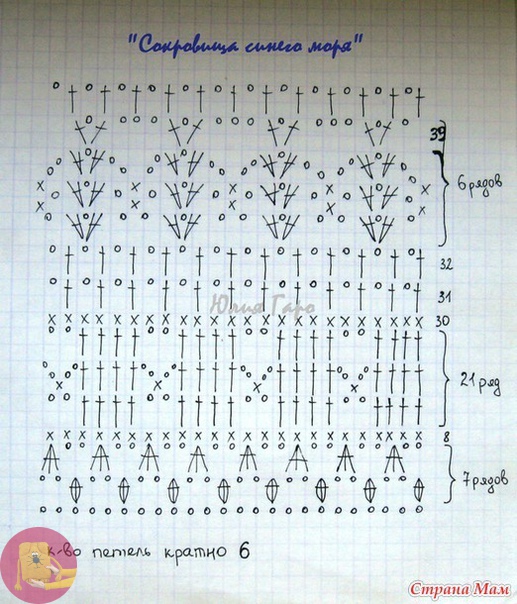 "Сокровища синего моря"
39
6 рядов
32
31
Юлия Гаро
30
21 ряд
8
7 рядов
к-во петель кратно 6
Страна Мам